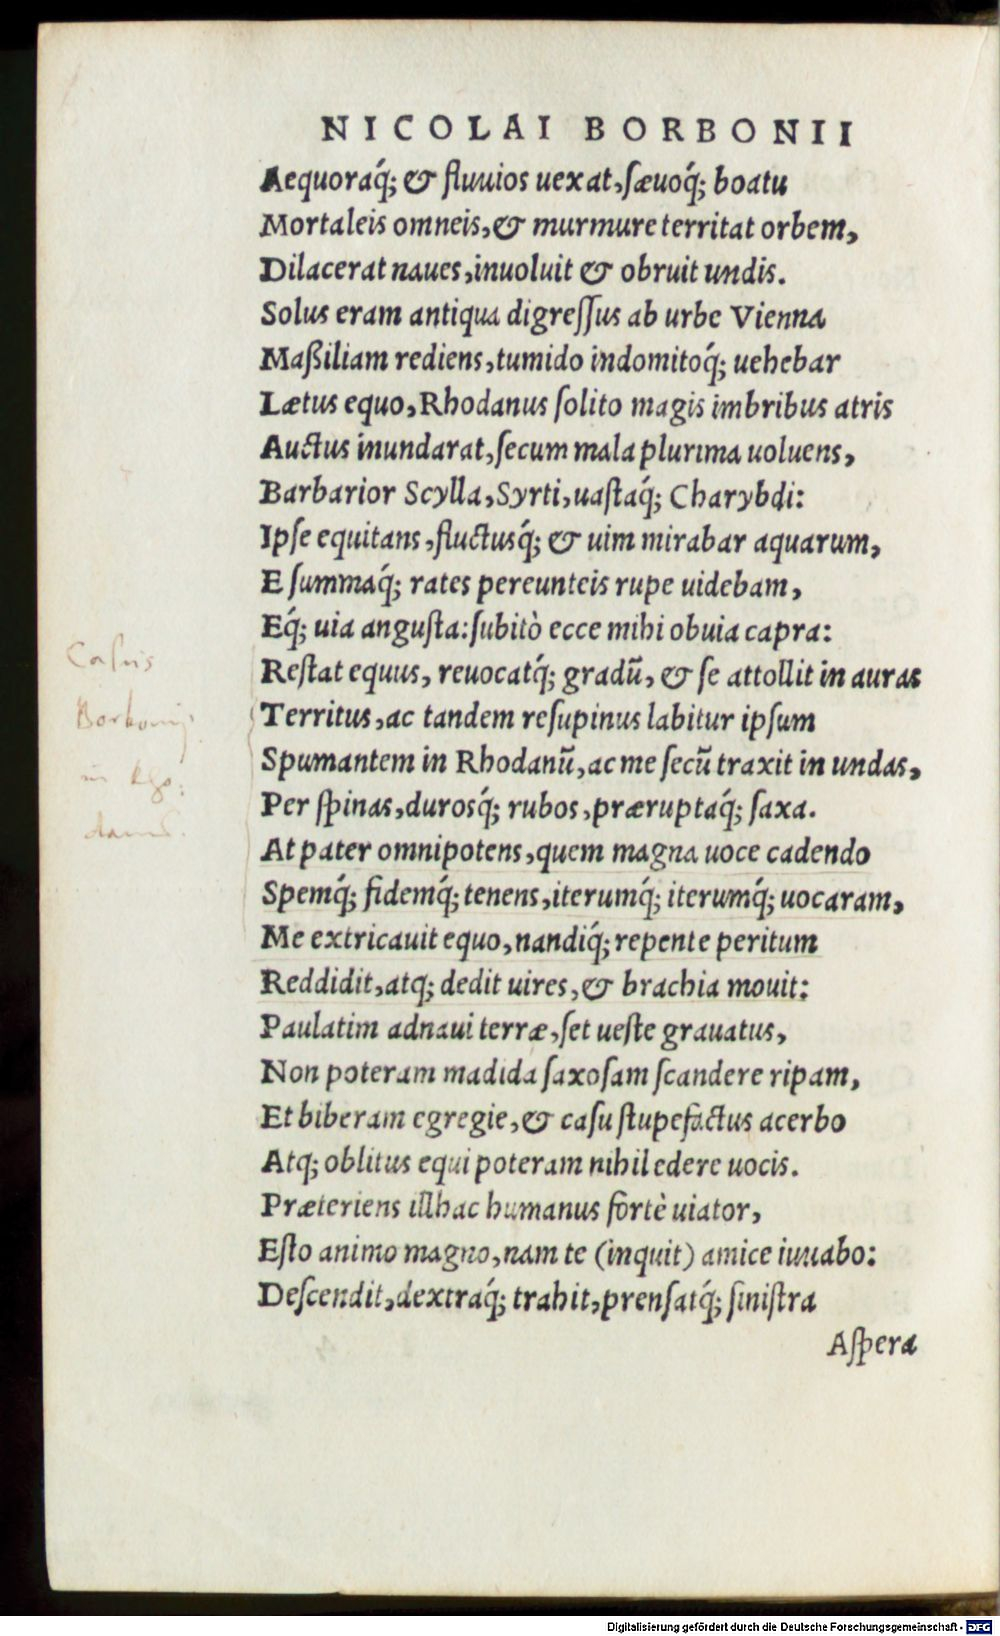 NICOLAI BORBONII
Aequoraq́; & fluuios uexat, sæuoq́; boatu
Mortaleis omneis, & murmure territat orbem,
Dilacerat naues, inuoluit & obruit undis.
Solus eram antiqua digreſſus ab urbe Vienna
Maßiliam rediens, tumido indomitoq́; uehebar
Lætus equo, Rhodanus ſolito magis imbribus atris
Auctus inundarat, ſecum mala plurima uoluens,
Barbarior Scylla, Syrti, uaſtaq́; Charybdi:
Ipſe equitans, fluctusq́; & uim mirabar aquarum,
E ſummaq́; rates pereunteis rupe uidebam,
Eq́; uia anguſta: ſubitò ecce mihi obuia capra:
Reſtat equus, reuocatq́; gradū, & ſe attollit in auras
Territus, ac tandem reſupinus labitur ipſum
Spumantem in Rhodanū, ac me ſecū traxit in undas,
Per ſpinas, durosq́; rubos, præruptaq́; ſaxa.
At pater omnipotens, quem magna uoce cadendo
Spemq́; fidemq́; tenens, iterumq́; iterumq́; uocaram,
Me extricauit equo, nandiq́; repente peritum
Reddidit, atq; dedit uires, & brachia mouit:
Paulatim adnaui terræ, ſet ueſte grauatus,
Non poteram madida ſaxoſam ſcandere ripam,
Et biberam egregie, & caſu ſtupefactus acerbo
Atq; oblitus equi poteram nihil edere uocis.
Præteriens illhac humanus fortè uiator,
Eſto animo magno, nam te (inquit) amice iuuabo:
Deſcendit, dextraq́; trahit, prenſatq́; ſiniſtra
Aſpera
Casus
Borbonij
in Rho:
danū.
Digitalisierung gefördert durch die Deutsche Forschungsgemeinschaft - DFG